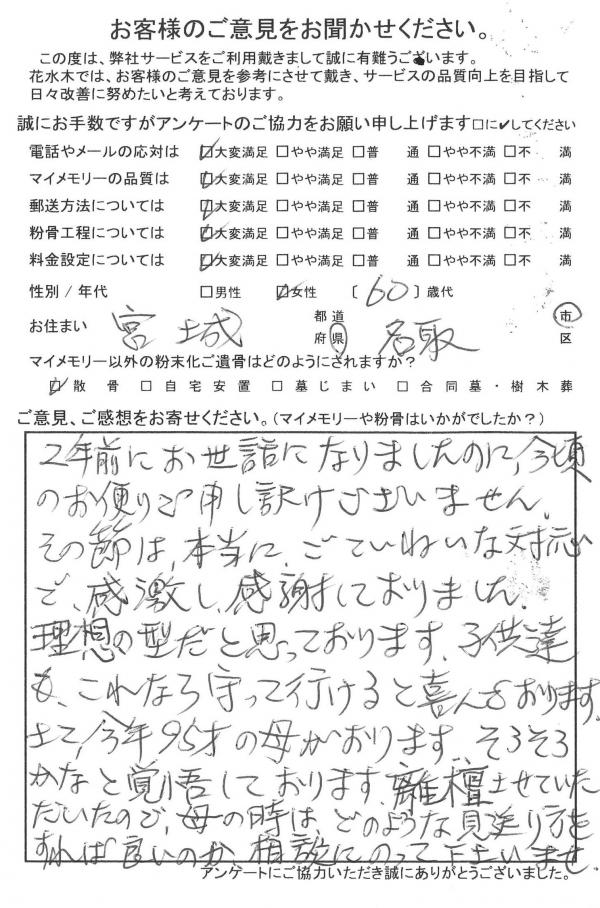 お客様のご意見をお聞かせください。
この度は、弊社サービスをご利用戴きまして誠に有難うございます。
花水木では、お客様のご意見を参考にさせて戴き、サービスの品質向上を目指して
日々改善に努めたいと考えております。
誠にお手数ですがアンケートのご協力をお願い申し上げます□に✔してください
電話やメールの応対は ☑大変満足 □やや満足 □普 通 □やや不満 □不 満
マイメモリーの品質は ☑大変満足 □やや満足 □普 通 □やや不満 □不 満
郵送方法については ☑大変満足 □やや満足 □普 通 □やや不満 □不 満
粉骨工程については ☑大変満足 □やや満足 □普 通 □やや不満 □不 満
料金設定については ☑大変満足 □やや満足 □普 通 □やや不満 □不 満
性別 / 年代 □男性 ☑女性 〔 60 〕歳代
お住まい 宮城 都道府県 名取 市区
マイメモリー以外の粉末化ご遺骨はどのようにされますか？
☑散骨 □自宅安置 □墓じまい □合同墓・樹木葬
ご意見、ご感想をお寄せください。(マイメモリーや粉骨はいかがでしたか？)
2年前にお世話になりましたのに、今頃
のお便りで申し訳けございません。
その節は、本当に、ごていねいな対応
で、感激し、感謝しておりました。
理想の型だと思っております。子供達
も、これなら守って行けると喜んでおります。
さて、今年95才の母がおります。そろそろ
かなと覚悟しております。離檀させていた
だいたので、母の時は、どのような見送り方を
すれば良いのか、相談にのって下さいませ。
アンケートにご協力いただき誠にありがとうございました。